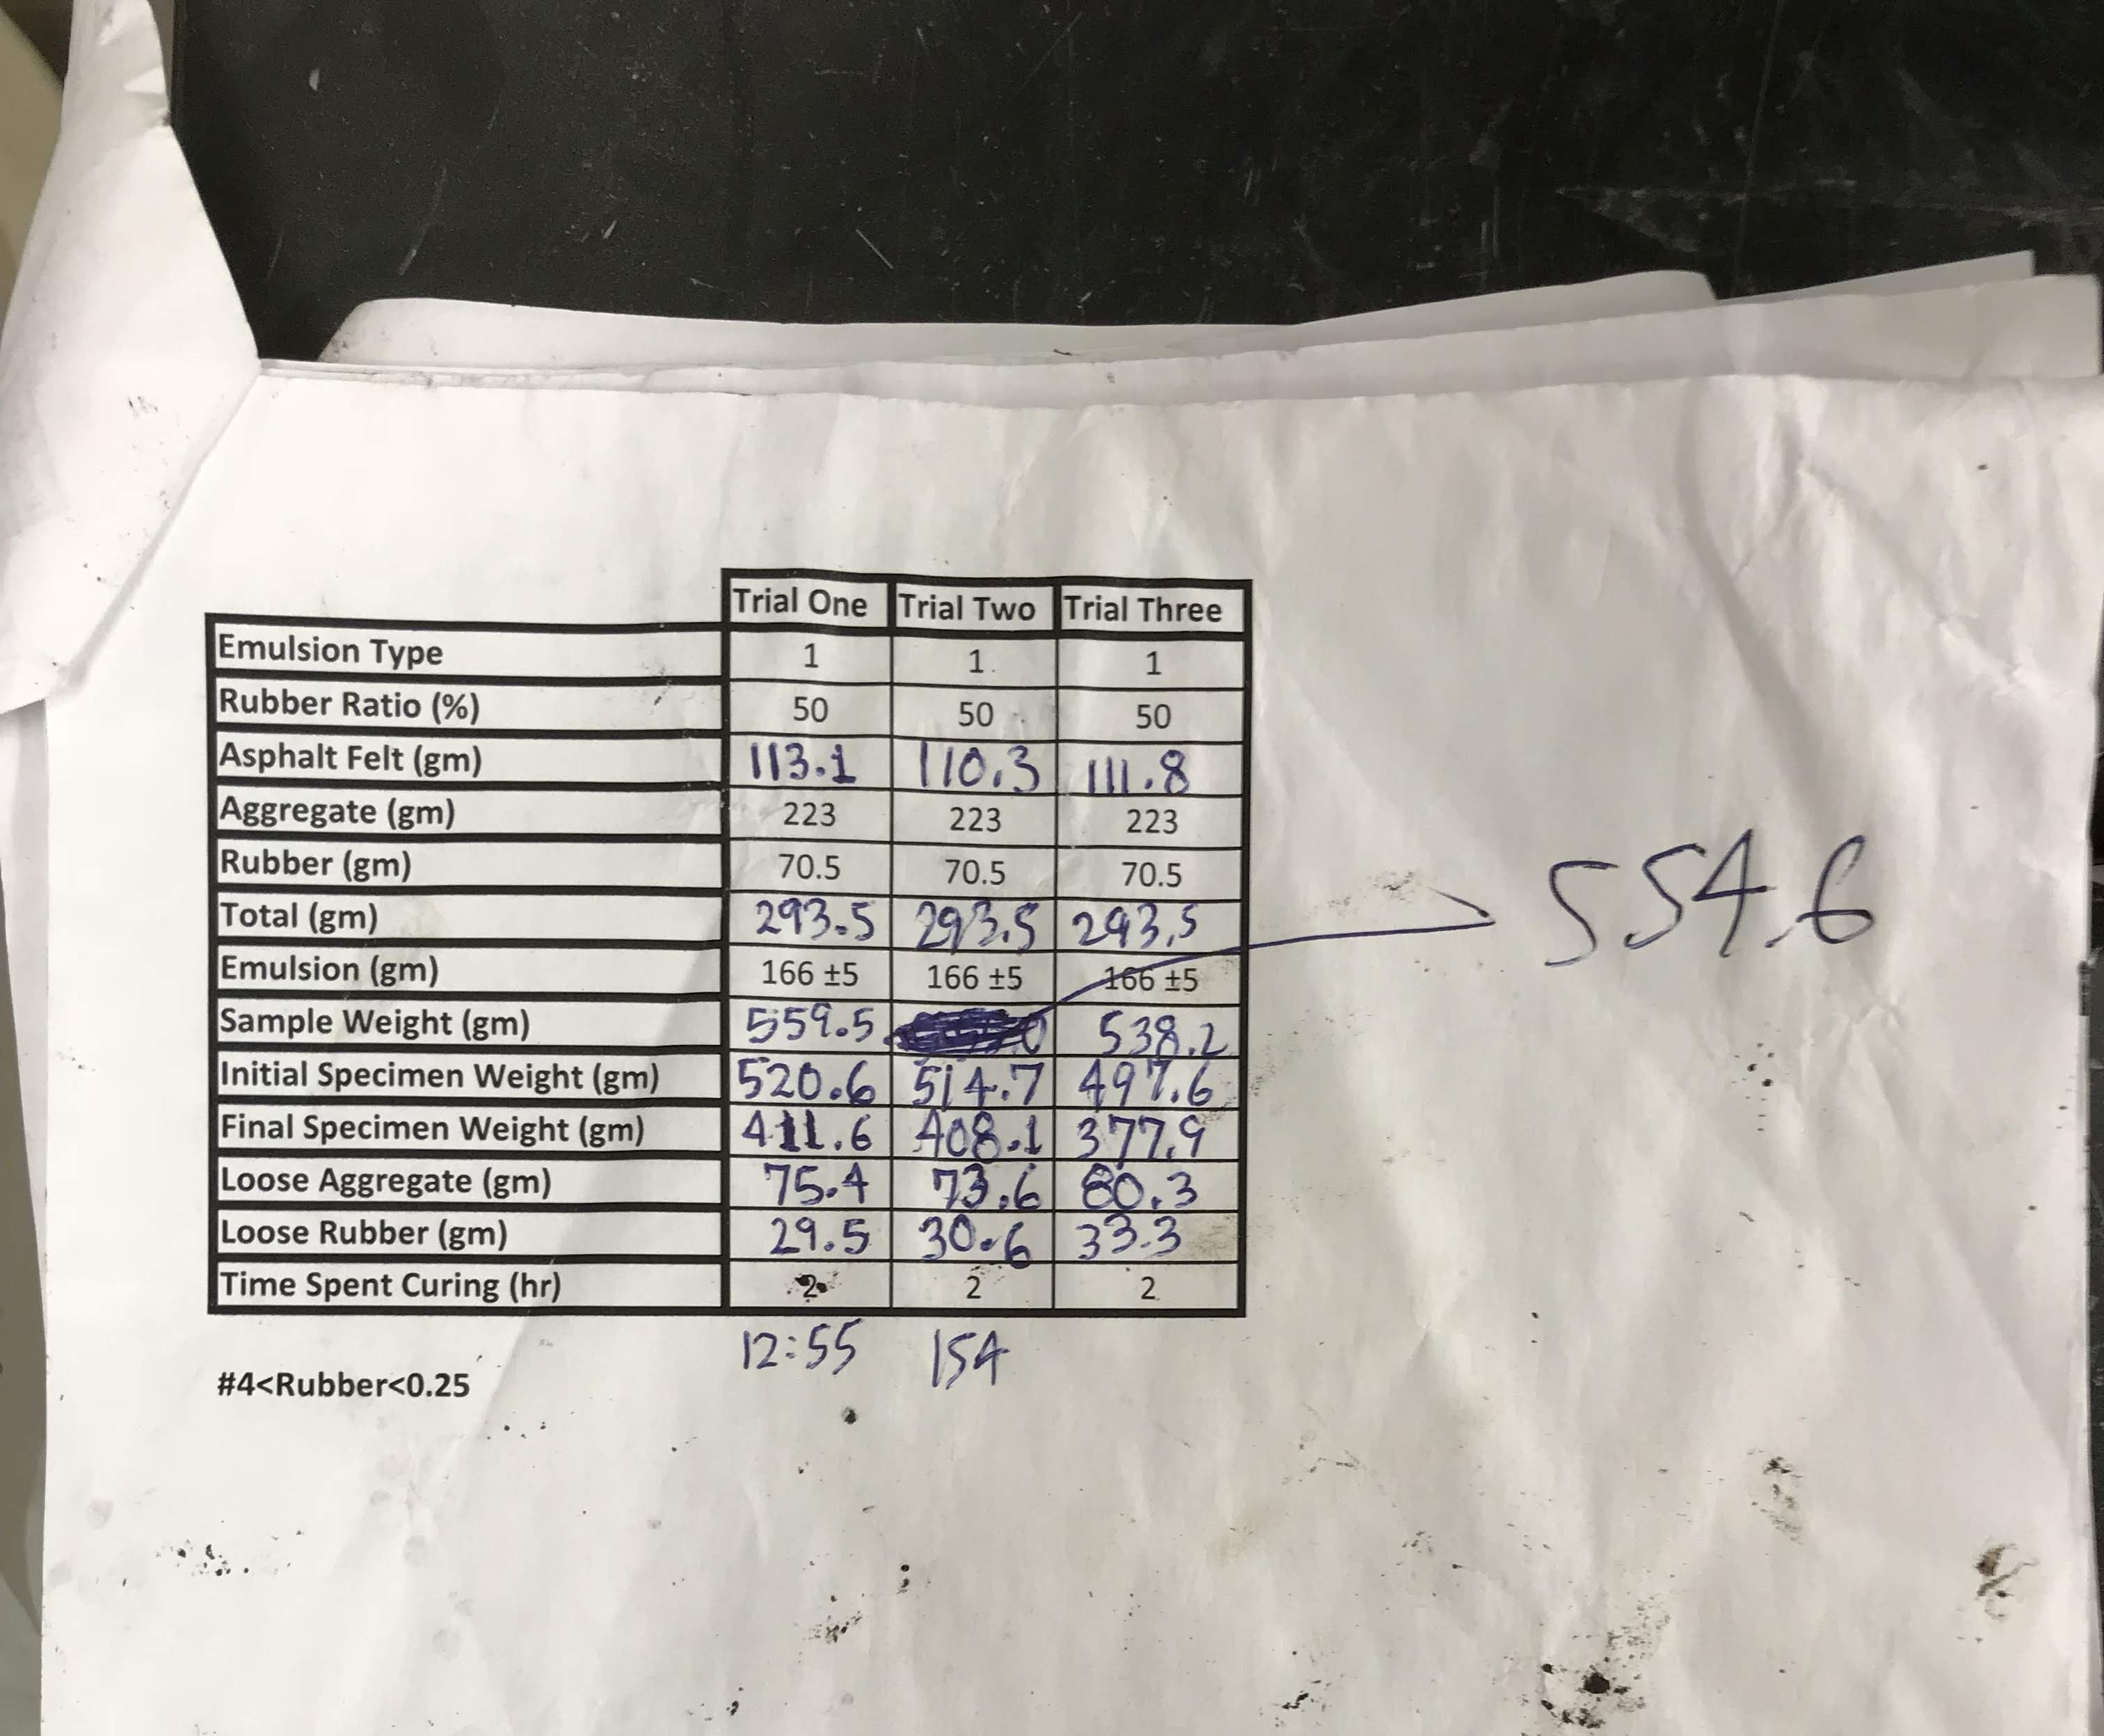 Trial One Trial Two Trial Three
Emulsion Type 1 1 1
Rubber Ratio (%) 50 50 50
Asphalt Felt (gm) 113.1 110.3 111.8
Aggregate (gm) 223 223 223
Rubber (gm) 70.5 70.5 70.5
Total (gm) 293.5 293.5 293.5
Emulsion (gm) 166 ±5 166 ±5 166 ±5
Sample Weight (gm) 559.5 554.6 538.2
Initial Specimen Weight (gm) 520.6 514.7 497.6
Final Specimen Weight (gm) 411.6 408.1 377.9
Loose Aggregate (gm) 75.4 73.6 80.3
Loose Rubber (gm) 29.5 30.6 33.3
Time Spent Curing (hr) 2 2 2
12:55 154
#4<Rubber<0.25